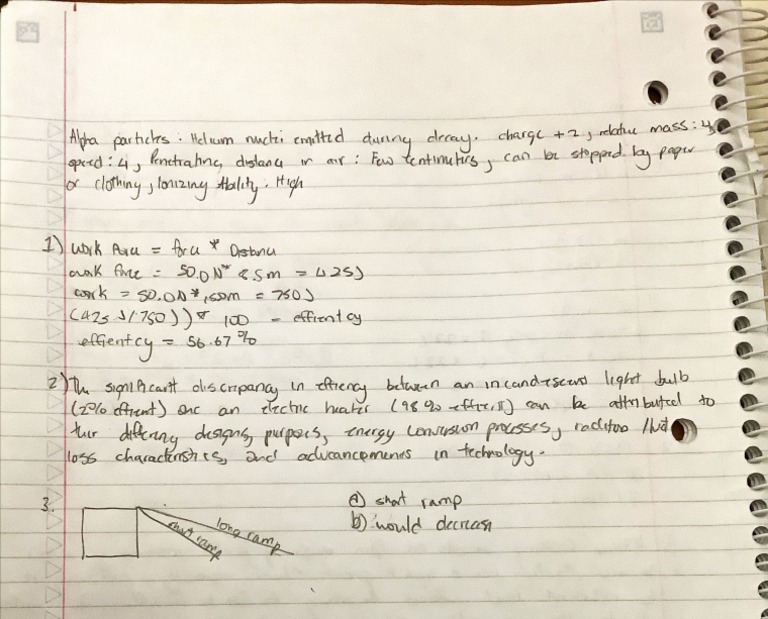 Alpha particles : Helium nuclei emitted during decay. charge +2, relative mass : 4,
speed : 4, Penetrating distance in air : Few centimeters, can be stopped by paper
or clothing, Ionizing Ability. High
1) Work Force = force * Distance
work force = 50.0N* 8.5m = 425J
work = 50.0N *, 15.0m = 750J
(425 J/750J) * 100 = effientcy
effientcy = 56.67%
2) The significant discrepancy in effiency between an incandescent light bulb
(2% effient) and an electric heater (98% effient) can be attributed to
their differing designs, purposes, energy conversion processes, heat
loss characteristics, and advancements in technology.
3.
short ramp
long ramp
a) short ramp
b) would decrease